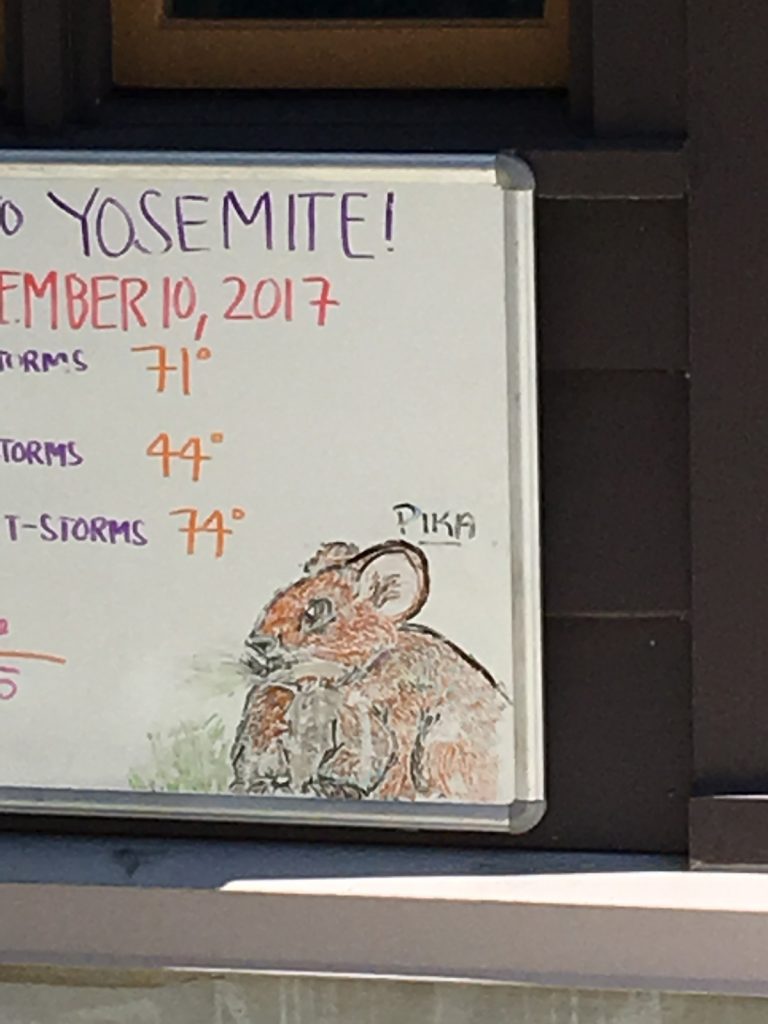 O YOSEMITE!
EMBER 10, 2017
TORMS 71°
TORMS 44°
T-STORMS 74°
PIKA
5